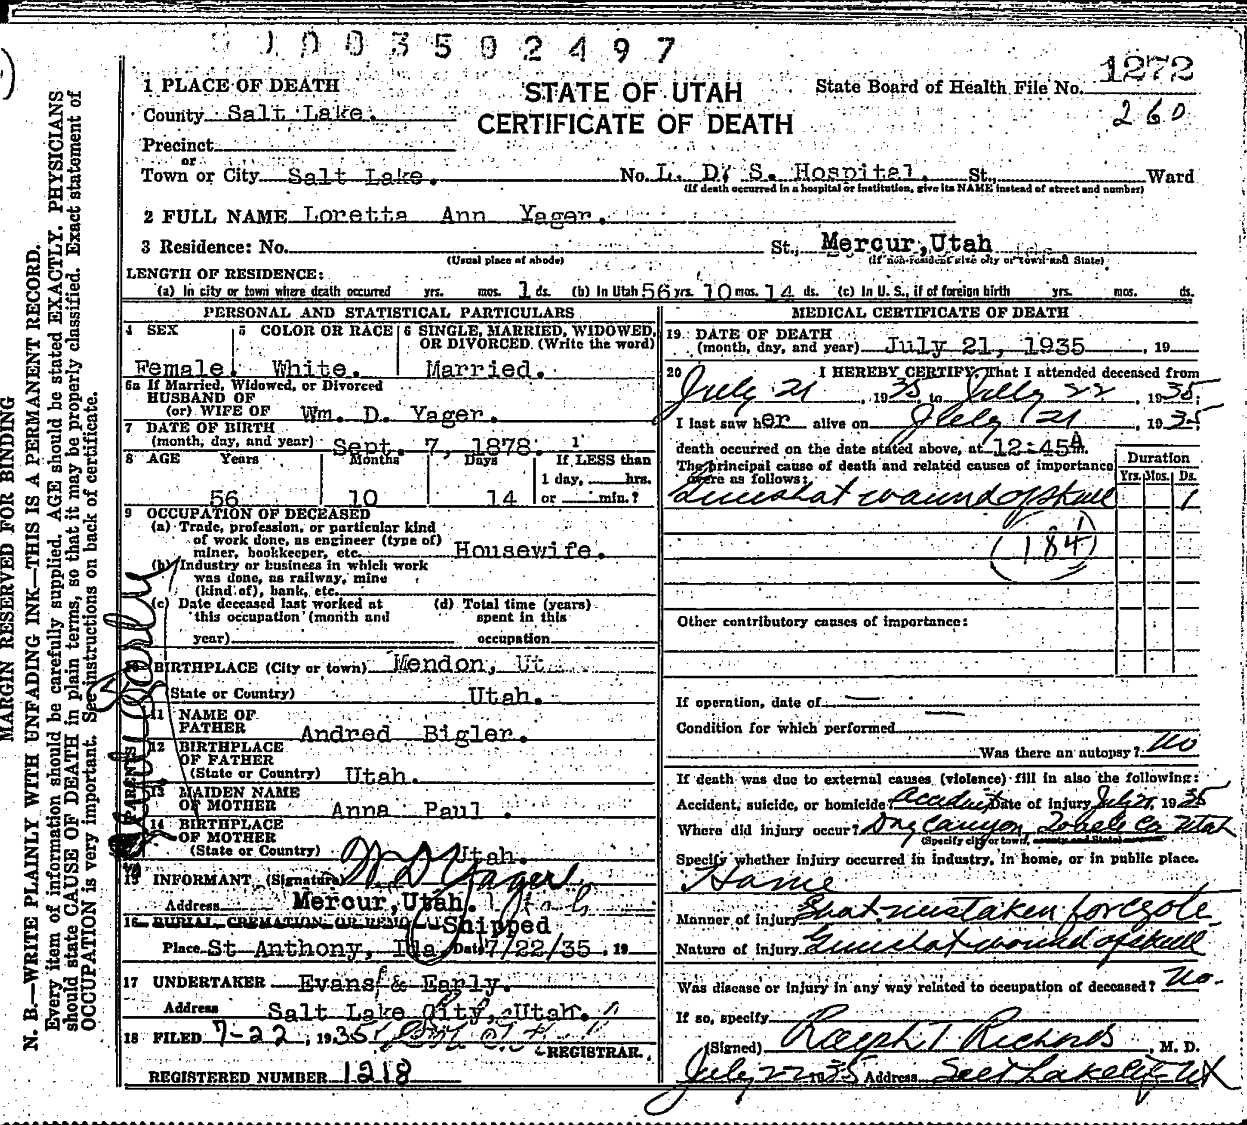 1003502497
1272
1 PLACE OF DEATH
STATE OF UTAH
State Board of Health File No.
County Salt Lake.
CERTIFICATE OF DEATH
260
Precinct
or
Town or City Salt Lake. No. L. D. S. Hospital. St., Ward
(If death occurred in a hospital or institution, give its NAME instead of street and number)
2 FULL NAME Loretta Ann Yager.
3 Residence: No. St., Mercur, Utah
(Usual place of abode) (If non-resident give city or town and State)
LENGTH OF RESIDENCE:
(a) In city or town where death occurred yrs. mos. 1 ds. (b) In Utah 56 yrs. 10 mos. 14 ds. (c) In U. S., if of foreign birth yrs. mos. ds.
PERSONAL AND STATISTICAL PARTICULARS
4 SEX 5 COLOR OR RACE 6 SINGLE, MARRIED, WIDOWED,
OR DIVORCED (Write the word)
Female. White. Married.
6a If Married, Widowed, or Divorced
HUSBAND OF
(or) WIFE OF Wm. D. Yager.
7 DATE OF BIRTH
(month, day, and year) Sept. 7, 1878.
8 AGE Years Months Days If LESS than
1 day, hrs.
56 10 14 or min.?
9 OCCUPATION OF DECEASED
(a) Trade, profession, or particular kind
of work done, as engineer (type of)
miner, bookkeeper, etc. Housewife.
(b) Industry or business in which work
was done, as railway, mine
(kind of), bank, etc.
(c) Date deceased last worked at (d) Total time (years)
this occupation (month and spent in this
year) occupation
10 BIRTHPLACE (City or town) Mendon, Ut
(State or Country) Utah.
PARENTS
11 NAME OF
FATHER Andred Bigler.
12 BIRTHPLACE
OF FATHER
(State or Country) Utah.
13 MAIDEN NAME
OF MOTHER Anna Paul.
14 BIRTHPLACE
OF MOTHER
(State or Country) Utah.
15 INFORMANT (Signature) W D Yager
Address Mercur, Utah.
16 BURIAL, CREMATION, OR REMOVAL Shipped
Place St Anthony, Ida. Date 7/22/35, 19
17 UNDERTAKER Evans & Early.
Address Salt Lake City, Utah.
18 FILED 7-22, 1935
REGISTRAR.
REGISTERED NUMBER 1218
MEDICAL CERTIFICATE OF DEATH
19 DATE OF DEATH
(month, day, and year) July 21, 1935, 19
20 I HEREBY CERTIFY, That I attended deceased from
July 21, 1935, to July 22, 1935;
I last saw her alive on July 21, 1935
death occurred on the date stated above, at 12:45 A m.
The principal cause of death and related causes of importance
were as follows:
Duration
Yrs. Mos. Ds.
Gunshot wound of skull 1
184
Other contributory causes of importance:
If operation, date of
Condition for which performed
Was there an autopsy? No
If death was due to external causes (violence) fill in also the following:
Accident, suicide, or homicide? Accident Date of injury July 21, 1935
Where did injury occur? Dry Canyon, Tooele Co Utah
(Specify city or town, county and State)
Specify whether injury occurred in industry, in home, or in public place.
Home
Manner of injury Shot mistaken for coyote
Nature of injury Gunshot wound of skull
Was disease or injury in any way related to occupation of deceased? No.
If so, specify
(Signed) Ralph T Richards, M. D.
July 22 1935 Address Salt Lake City Ut
MARGIN RESERVED FOR BINDING
N. B.—WRITE PLAINLY WITH UNFADING INK—THIS IS A PERMANENT RECORD.
Every item of information should be carefully supplied. AGE should be stated EXACTLY. PHYSICIANS
should state CAUSE OF DEATH in plain terms, so that it may be properly classified. Exact statement of
OCCUPATION is very important. See instructions on back of certificate.